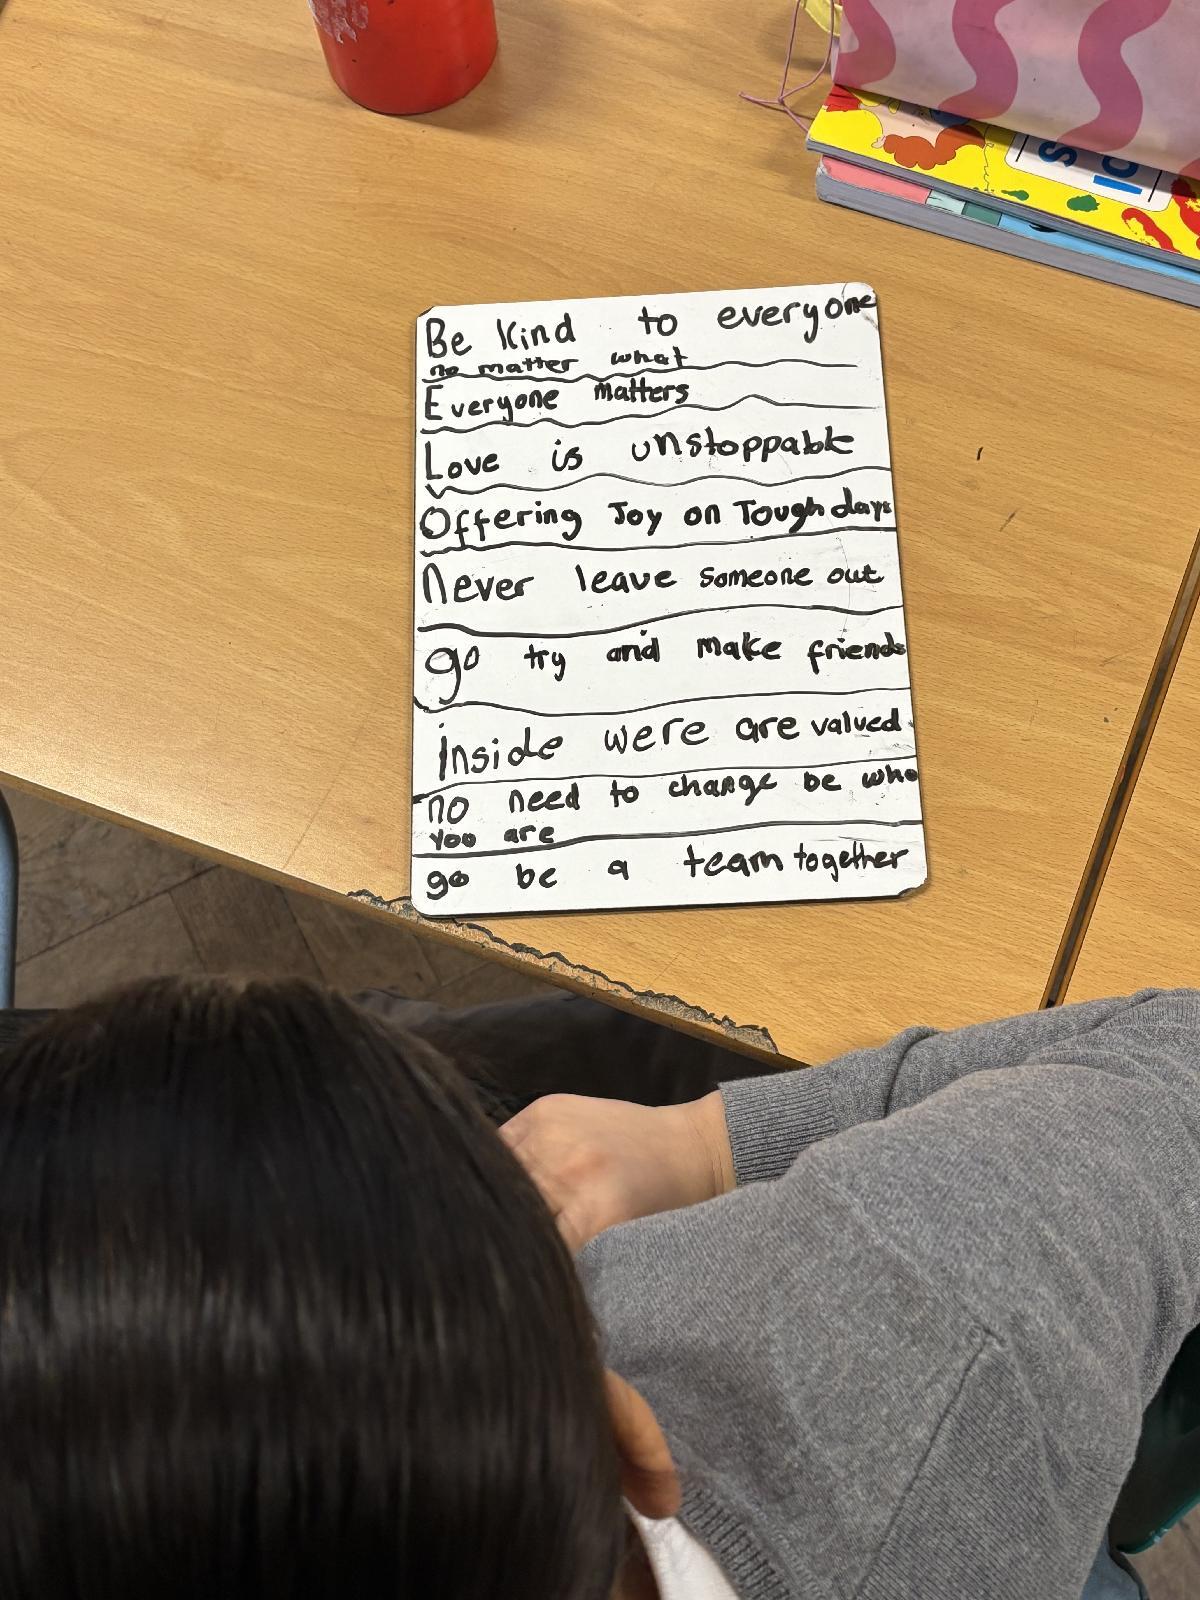 Be kind to everyone
no matter what
Everyone matters
Love is unstoppable
Offering Joy on Tough days
Never leave someone out
go try and make friends
inside were are valued
no need to change be who
you are
go be a team together